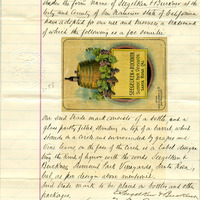 under the firm name of Stegelken & Brückner at the
City and County of San Francisco State of California
have adopted for our use and names a trademark
of which the following is a fac simile:
STEGELKEN & BRÜCKNER
SUMMIT PARK VINEYARDS
SANTA ROSA, CAL.
Our said trade mark consists of a bottle, and a
glass partly filled standing on top of a barrel which
stands in a circle and surrounded by grapes and
Vine leaves, on the face of the circle is a label design
ing the kind of liquor with the words Stegelken &
Brückner Summit Park Vineyards, Santa Rosa,
Cal. as per design above numbered.
Said trade mark to be placed on bottles and other
packages.